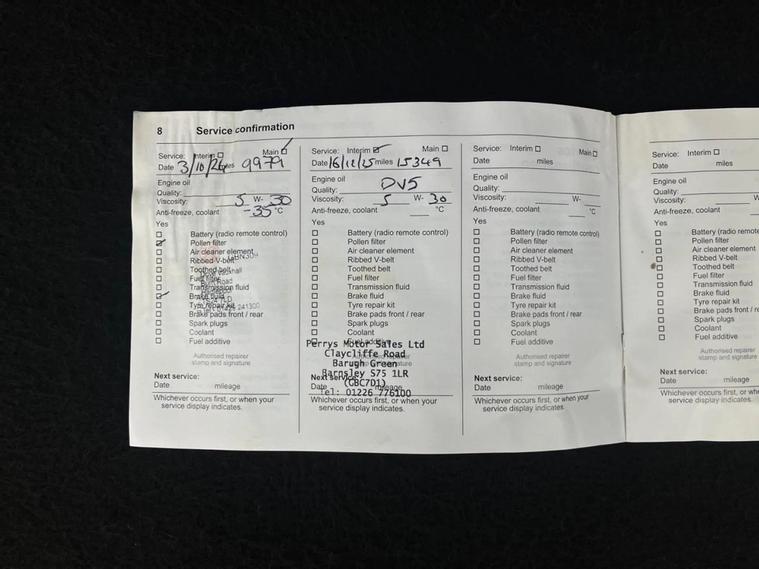 8 Service confirmation
Service: Interim Main
Date 3/10/24 miles 9979
Engine oil
Quality:
Viscosity: 5 W- 30
Anti-freeze, coolant -35 °C
Yes
Battery (radio remote control)
Pollen filter
Air cleaner element
Ribbed V-belt
Toothed belt
Fuel filter
Transmission fluid
Brake fluid
Tyre repair kit
Brake pads front / rear
Spark plugs
Coolant
Fuel additive
Authorised repairer
stamp and signature
Next service:
Date mileage
Whichever occurs first, or when your
service display indicates.
Service: Interim Main
Date 16/12/25 miles 15349
Engine oil
Quality: DV5
Viscosity: 5 W- 30
Anti-freeze, coolant °C
Yes
Battery (radio remote control)
Pollen filter
Air cleaner element
Ribbed V-belt
Toothed belt
Fuel filter
Transmission fluid
Brake fluid
Tyre repair kit
Brake pads front / rear
Spark plugs
Coolant
Fuel additive
Perrys Motor Sales Ltd
Claycliffe Road
Barugh Green
Barnsley S75 1LR
(GBC7D1)
Tel: 01226 776100
Next service:
Date mileage
Whichever occurs first, or when your
service display indicates.
Service: Interim Main
Date miles
Engine oil
Quality:
Viscosity: W-
Anti-freeze, coolant °C
Yes
Battery (radio remote control)
Pollen filter
Air cleaner element
Ribbed V-belt
Toothed belt
Fuel filter
Transmission fluid
Brake fluid
Tyre repair kit
Brake pads front / rear
Spark plugs
Coolant
Fuel additive
Authorised repairer
stamp and signature
Next service:
Date mileage
Whichever occurs first, or when your
service display indicates.
Service: Interim
Date miles
Engine oil
Quality:
Viscosity:
Anti-freeze, coolant
Yes
Battery (radio remote
Pollen filter
Air cleaner element
Ribbed V-belt
Toothed belt
Fuel filter
Transmission fluid
Brake fluid
Tyre repair kit
Brake pads front /
Spark plugs
Coolant
Fuel additive
Authorised repairer
stamp and signature
Next service:
Date mileage
Whichever occurs first, or
service display indicates.